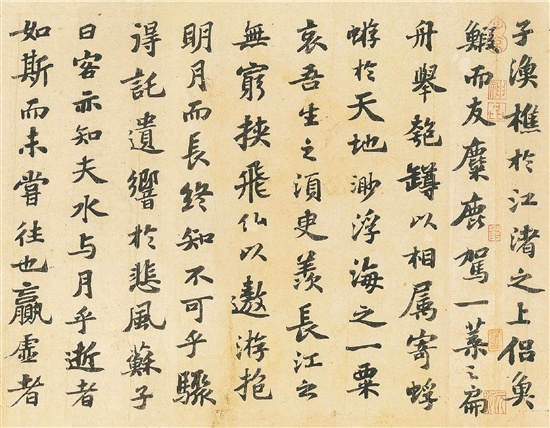 子漁樵於江渚之上侶魚
鰕而友麋鹿駕一葉之扁
舟舉匏罇以相属寄蜉
蝣於天地渺浮海之一粟
哀吾生之須臾羨長江之
無窮挟飛仙以遨游抱
明月而長終知不可乎驟
得託遺響於悲風蘇子
曰客亦知夫水与月乎逝者
如斯而未嘗往也贏虚者